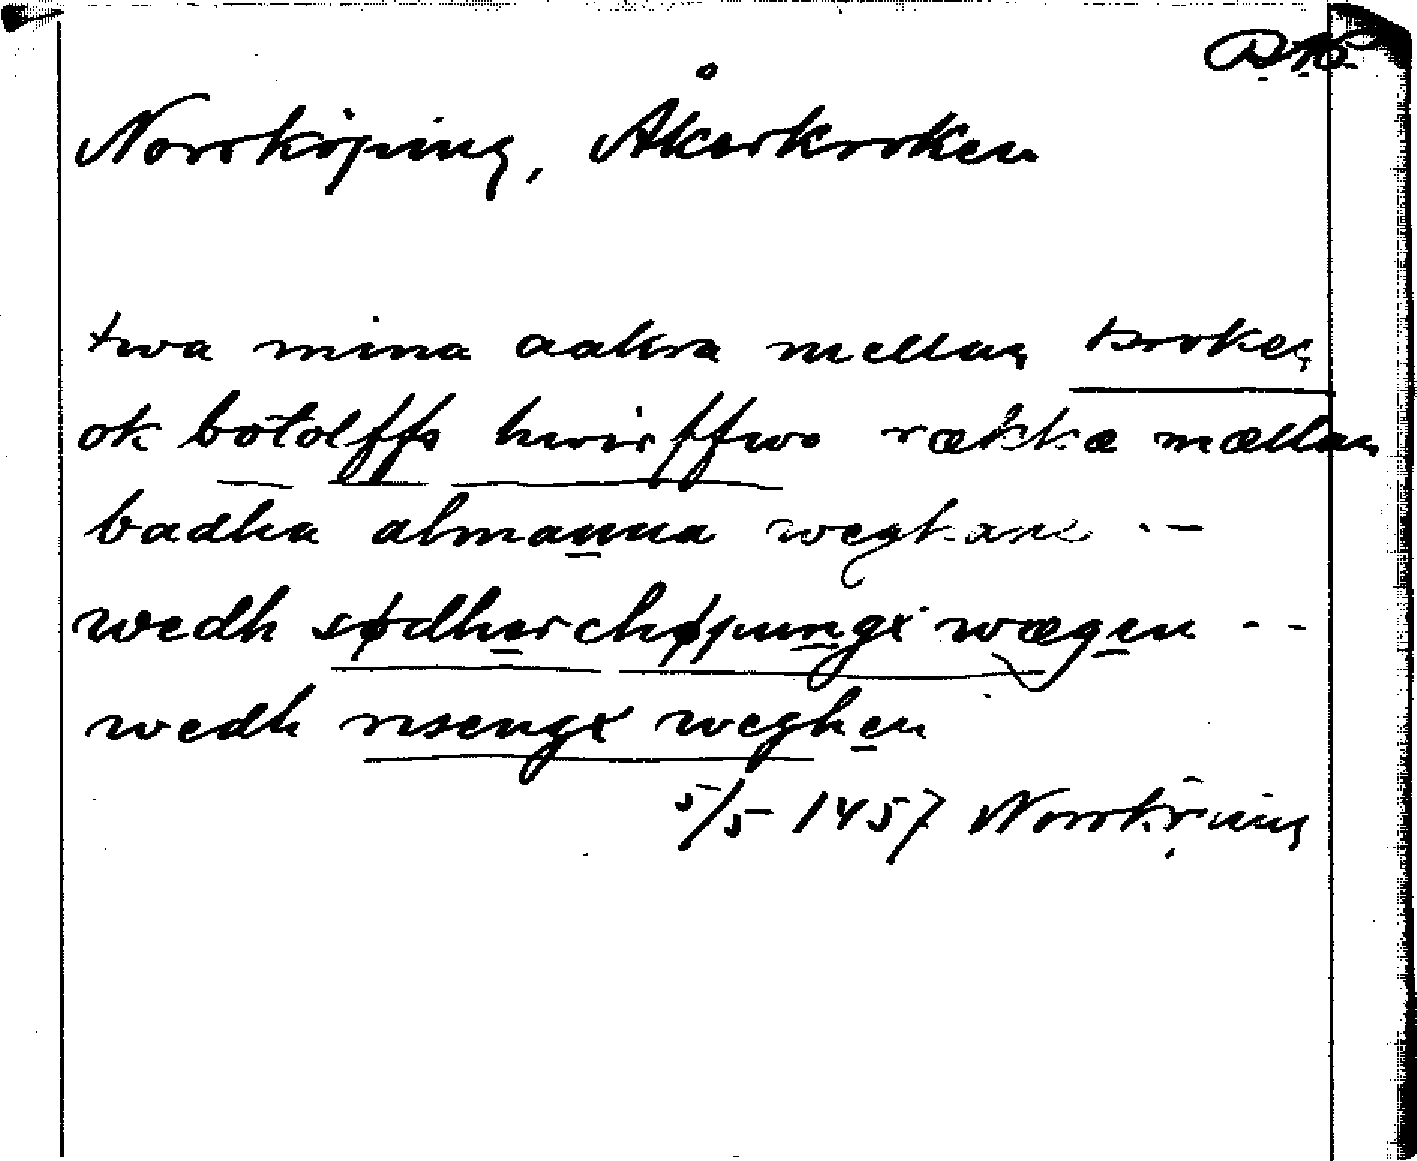 Norrköping, Åkerkroken
twa mina aakra mellan kroken
ok botolffs hwirffwo rækkæ mællan
badha almanna weghane --
wedh sødherchøpungx wægen --
wedh risengx weghen
5/5 1457 Norrköping